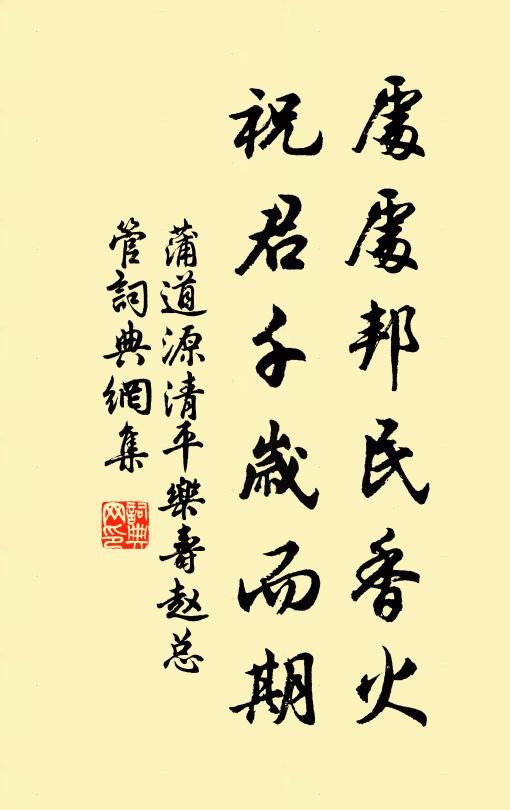 處處邦民香火
祝君千歲而期
蒲道源清平樂壽赵总
管詞典網集
詞典网印